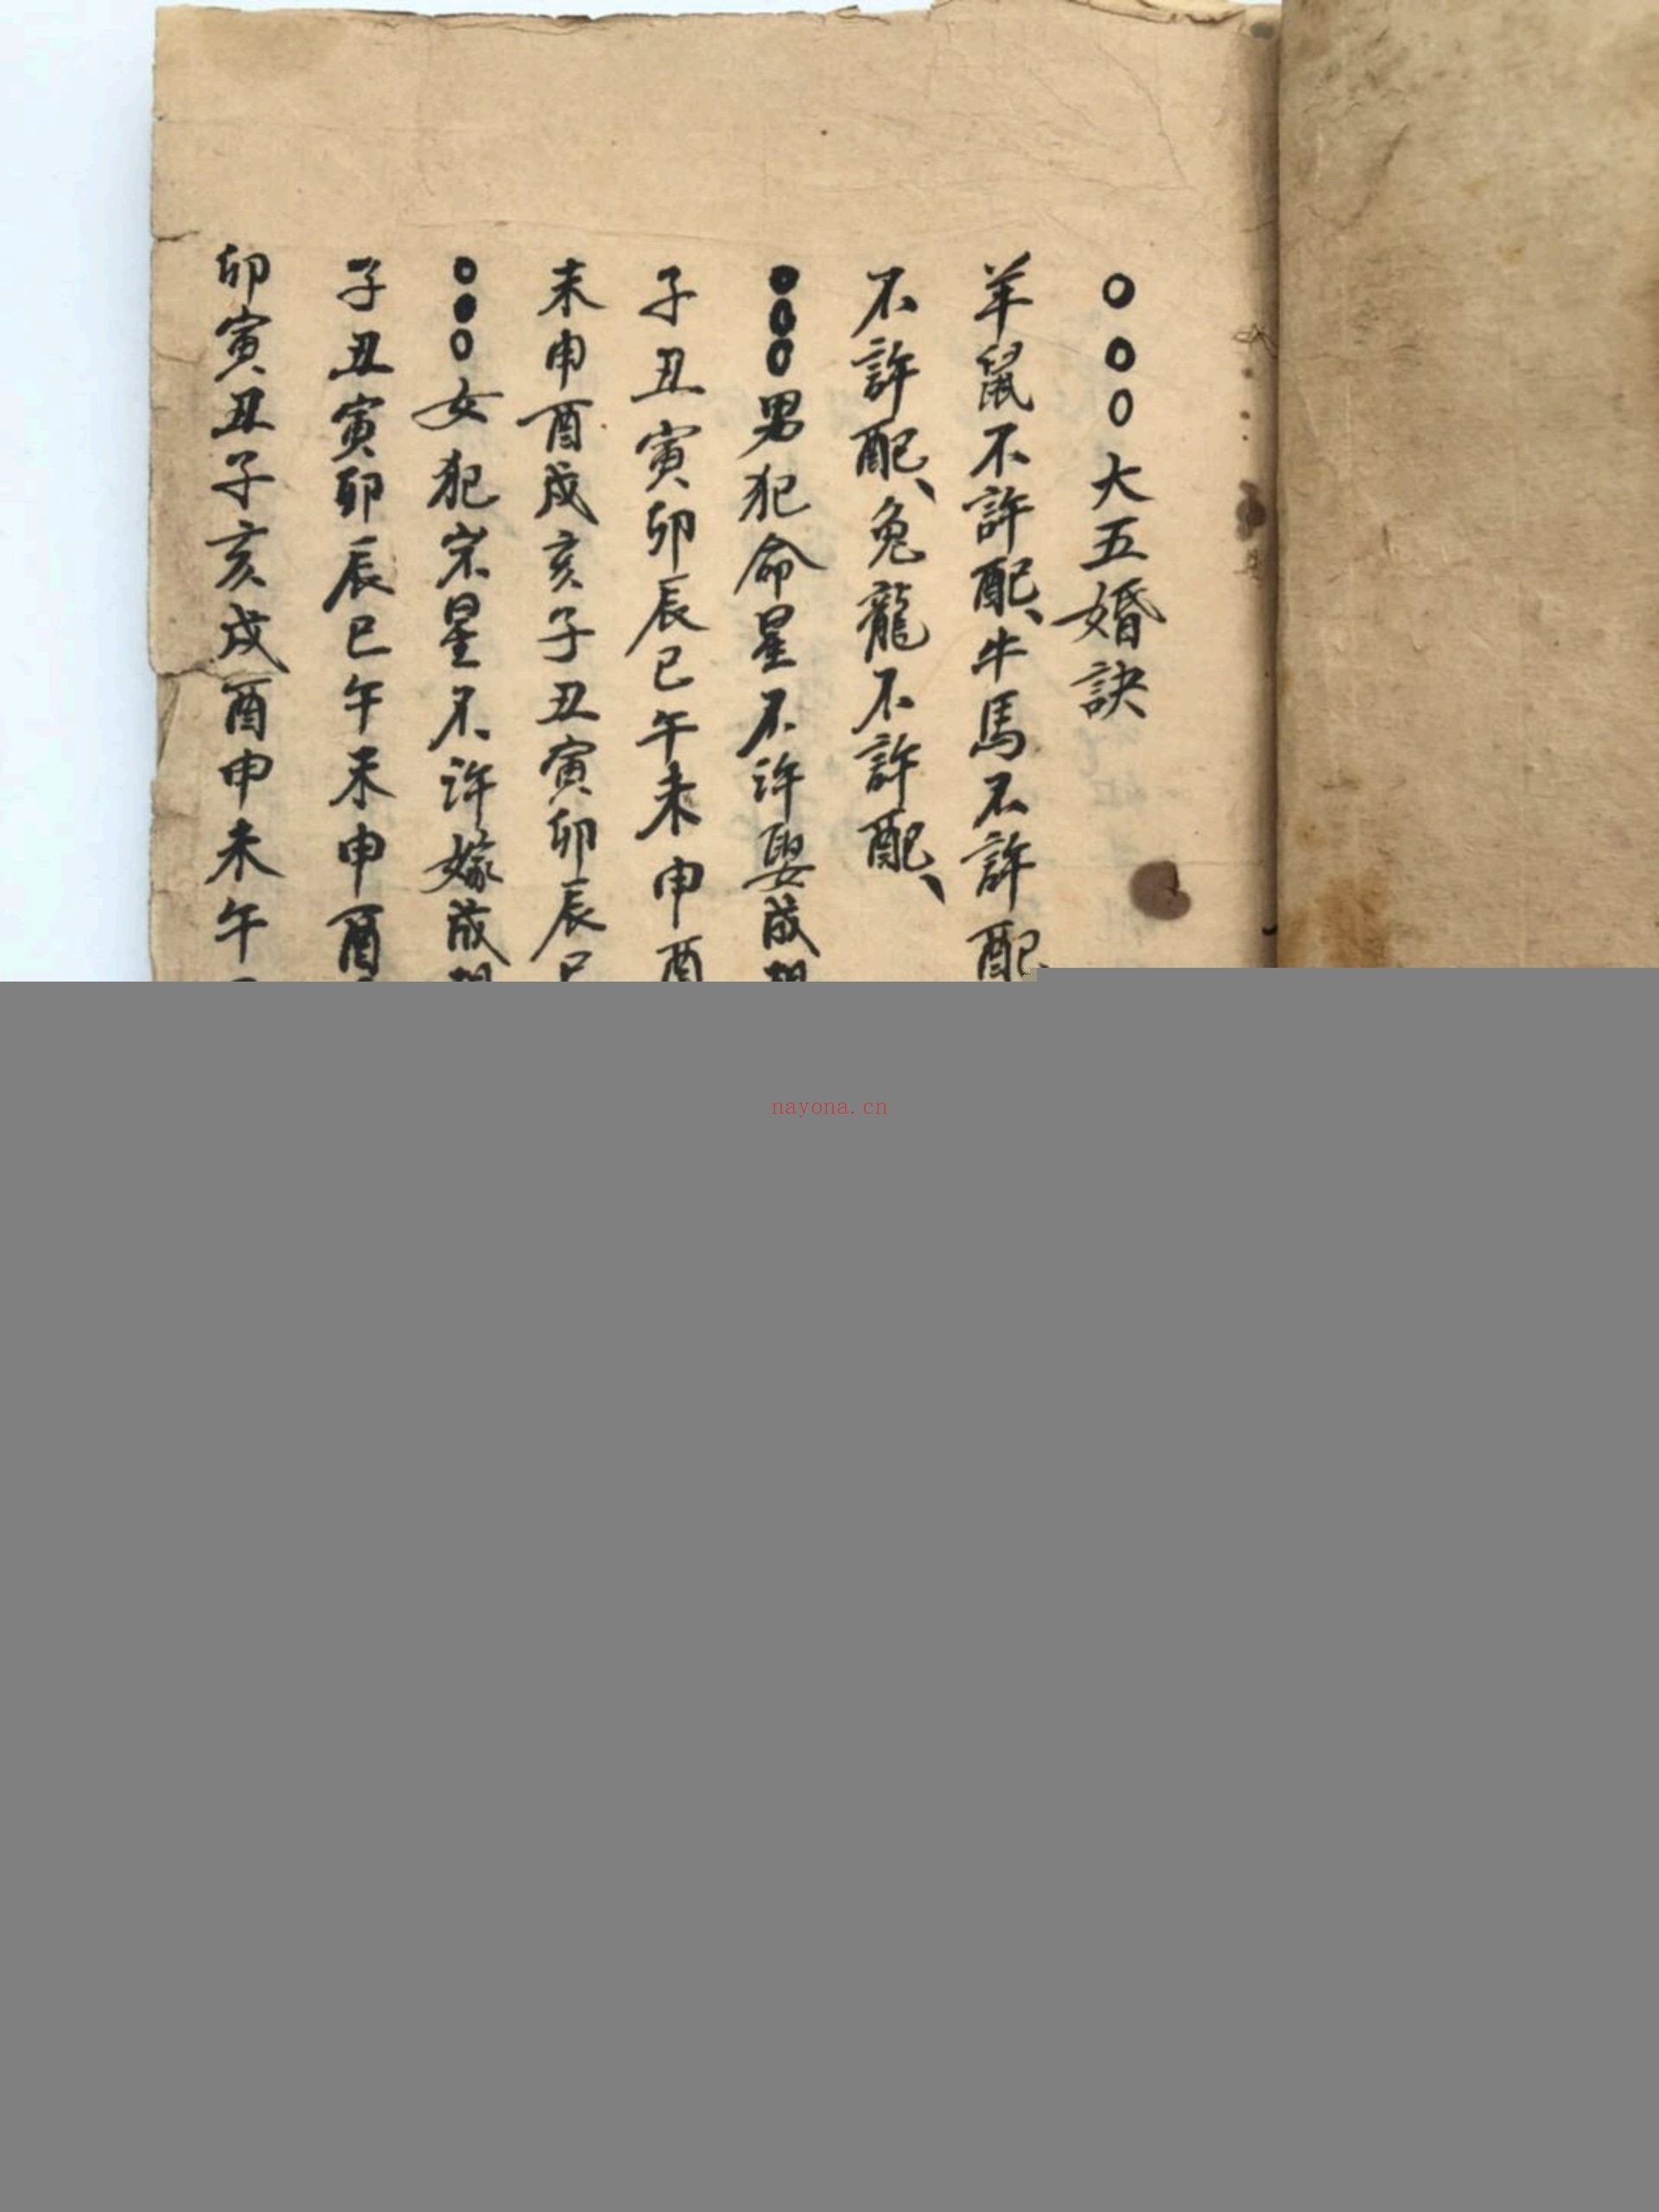 ○○○大五婚訣
羊鼠不許配、牛馬不許配、
不許配、兔龍不許配、
○○○男犯命星不许娶成
子丑寅卯辰巳午未申酉
未申酉戌亥子丑寅卯辰巳
○○○女犯宗星不许嫁成
子丑寅卯辰巳午未申酉
卯寅丑子亥戌酉申未午
nayona.cn